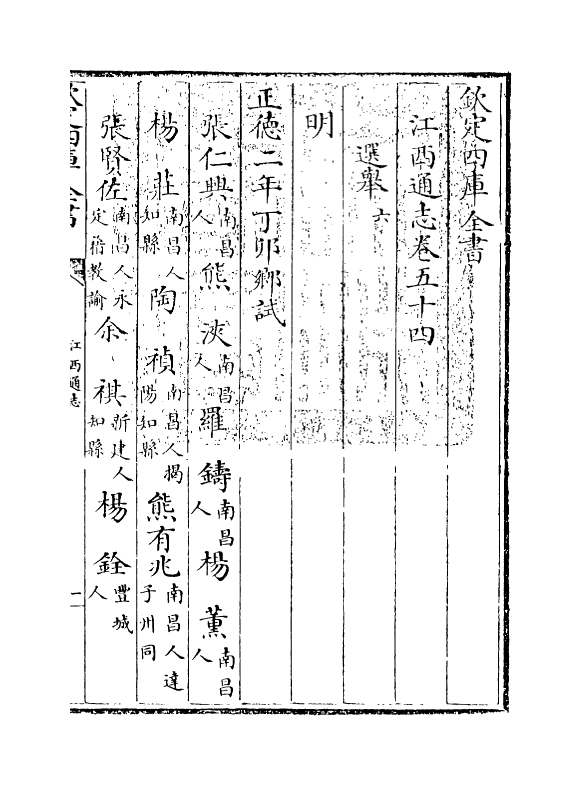 欽定四庫全書
江西通志卷五十四
選舉六
明
正德二年丁卯鄉試
張仁興南昌人熊浹南昌人羅鑄南昌人楊薰南昌人
楊莊南昌人知縣陶禎南昌人揭陽知縣熊有兆南昌人達子州同
張賢佐南昌人永定衛教諭余祺新建人知縣楊銓豐城人
江西通志
一